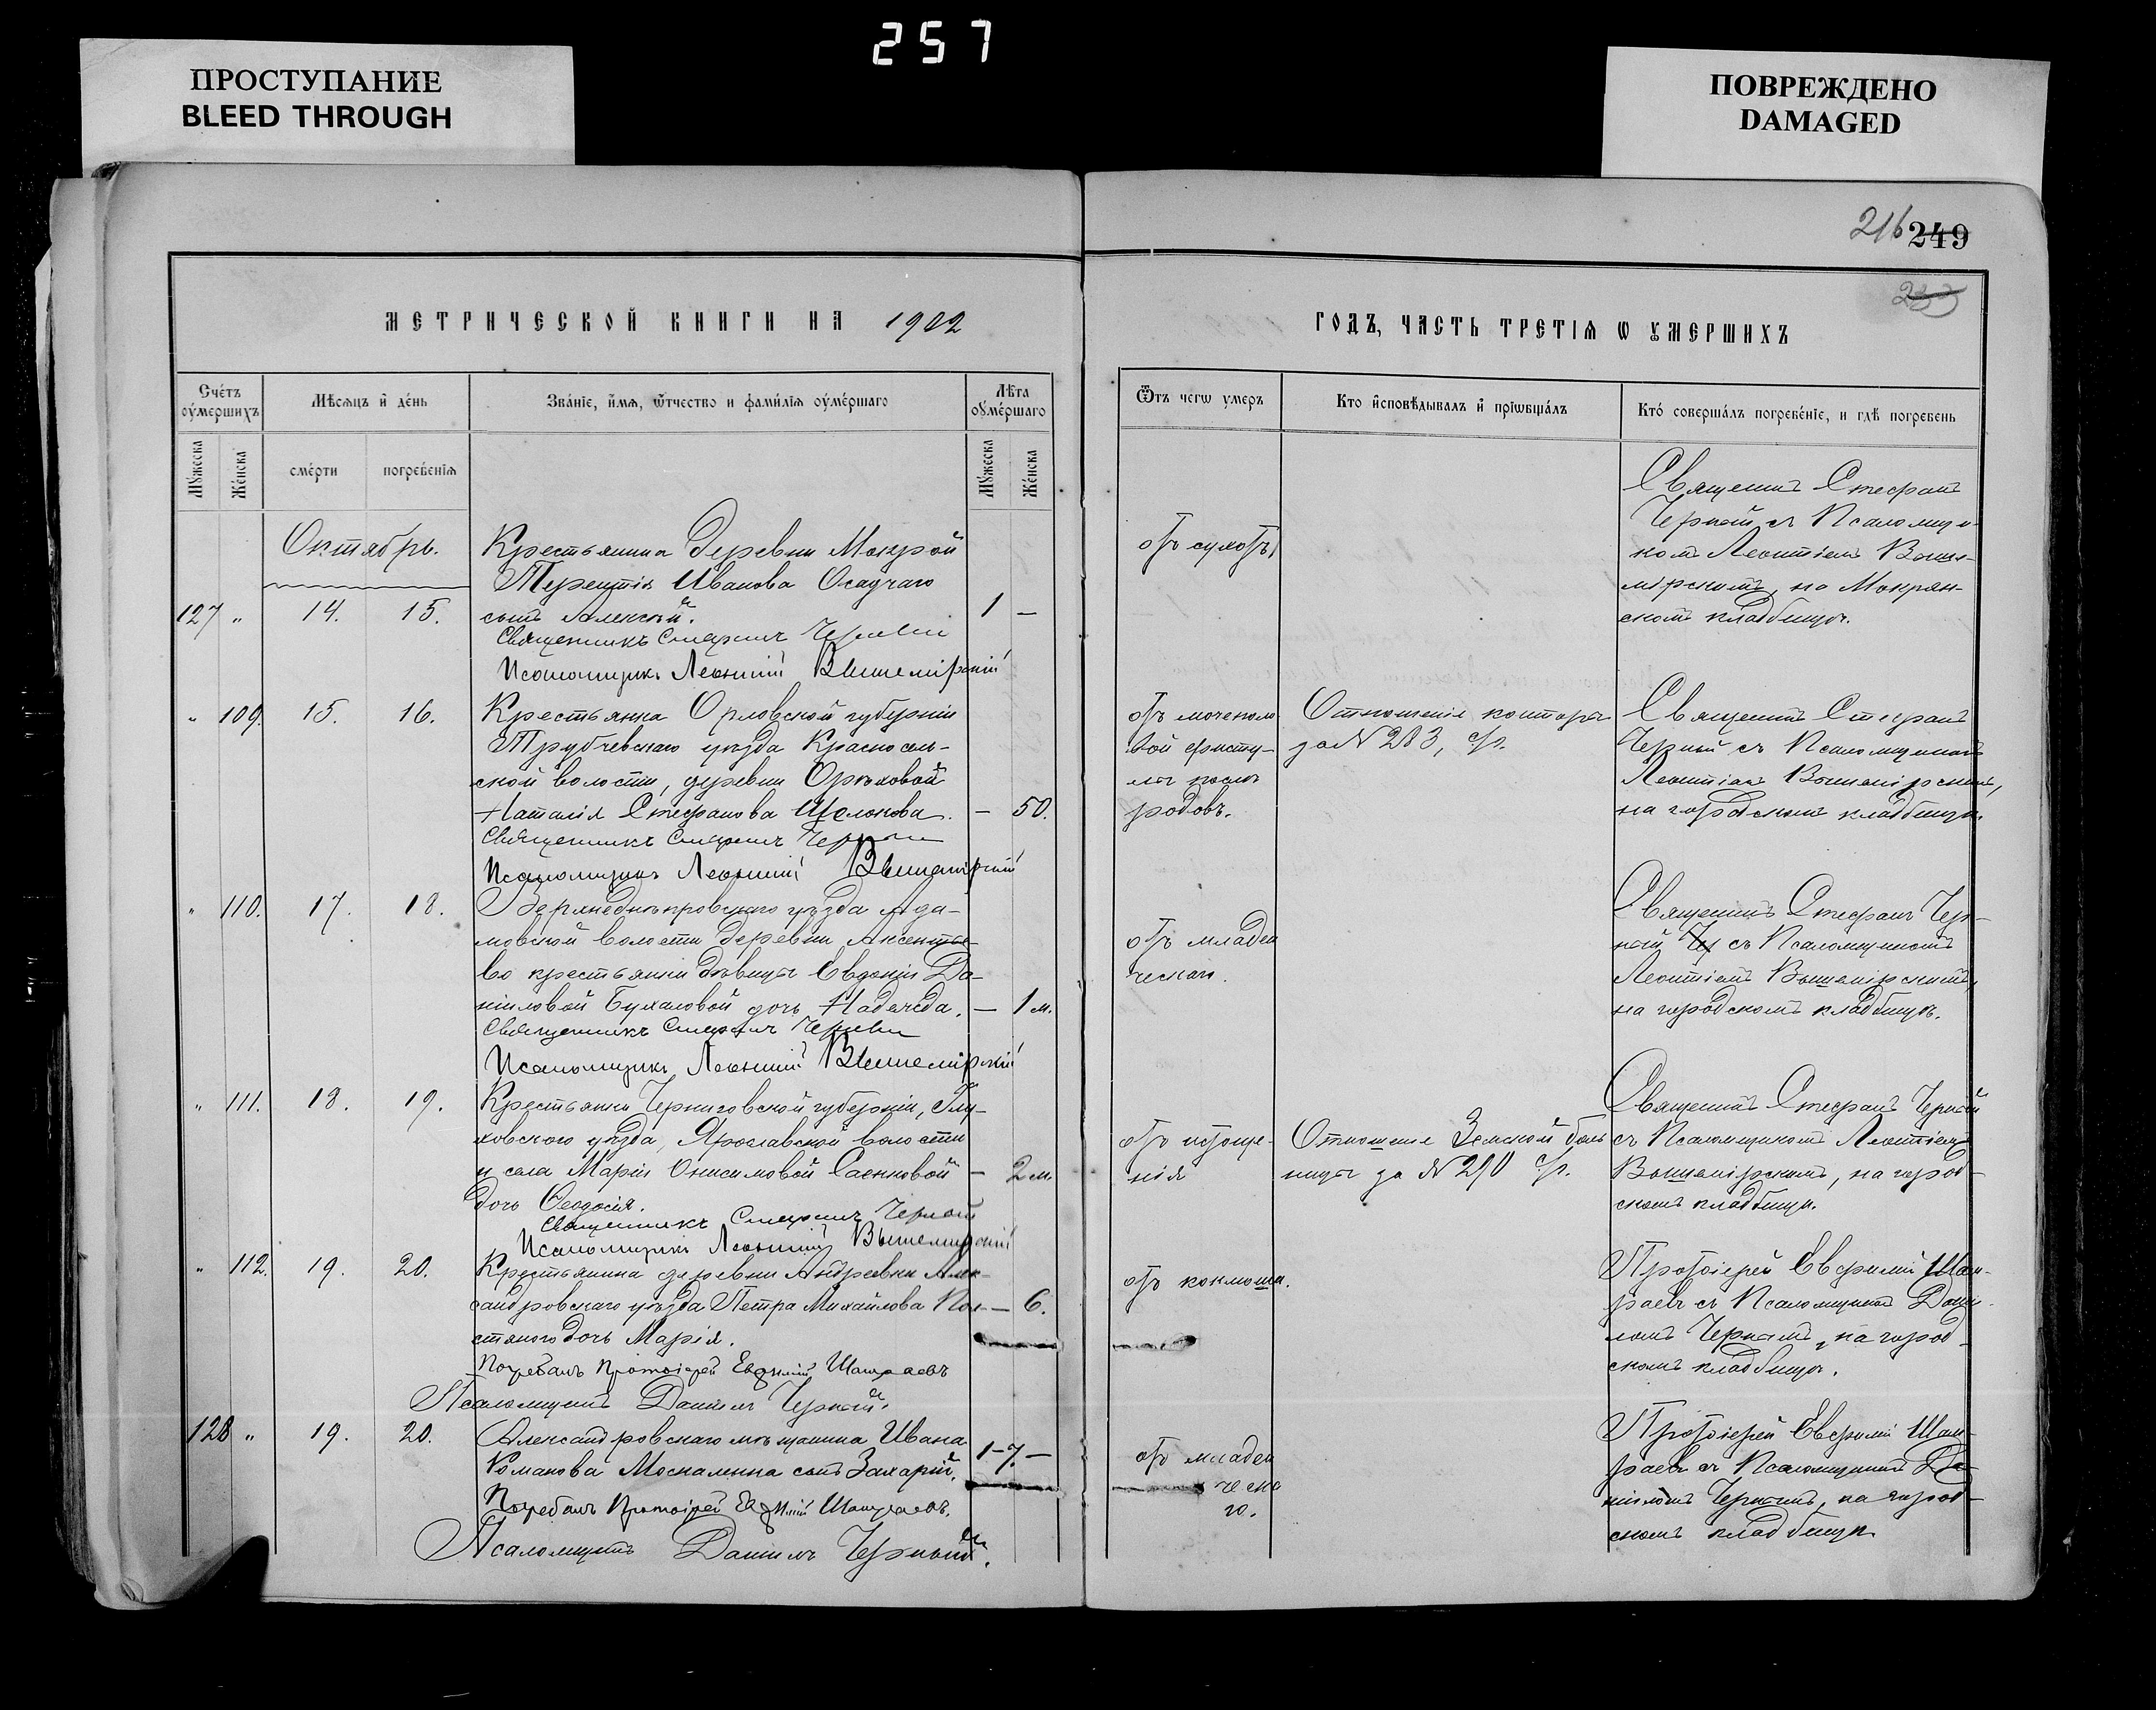 257
ПРОСТУПАНИЕ
BLEED THROUGH
ПОВРЕЖДЕНО
DAMAGED
216 249
МЕТРИЧЕСКОЙ КНИГИ НА 1902
ГОДЪ, ЧАСТЬ ТРЕТІѦ Ѡ ОУМЕРШИХЪ
Счетъ оумершихъ
Мѣсяцъ и день
Званіе, имя, ѿчество и фамилія оумершаго
Лѣта оумершаго
Ѿтъ чегѡ умеръ
Кто исповѣдывалъ и пріѡбщалъ
Кто совершалъ погребеніе, и гдѣ погребенъ
Мужеска
Женска
смерти
погребенія
Мужеска
Женска
Октябрь.
Крестьянина деревни Мокрой
Терентія Иванова Осадчаго
127 " 14. 15. сынъ Алексѣй. 1 –
Священникъ Стефанъ Черный
Псаломщикъ Леонтій Вышемірскій
отъ сухотъ
Священникъ Стефанъ
Черный съ Псаломщи-
комъ Леонтіемъ Выше-
мірскимъ, на Мокрян-
скомъ кладбищѣ.
" 109. 15. 16. Крестьянка Орловской губерніи
Трубчевскаго уѣзда Красносель-
ской волости, деревни Орѣховой
Наталія Стефанова Щелокова. – 50.
Священникъ Стефанъ Черный
Псаломщикъ Леонтій Вышемірскій
отъ мочеполо-
вой фисту-
лы послѣ
родовъ.
Отношеніе конторы
за № 283, с/г.
Священникъ Стефанъ
Черный съ Псаломщикомъ
Леонтіемъ Вышемірскимъ,
на городскомъ кладбищѣ.
" 110. 17. 18. Верхнеднѣпровскаго уѣзда Ада-
мовской волости деревни Аксентье-
во крестьянки дѣвицы Евдокіи Да-
ніиловой Бухаловой дочь Надежда. – 1 м.
Священникъ Стефанъ Черный
Псаломщикъ Леонтій Вышемірскій
отъ младен
ческаго.
Священникъ Стефанъ Чер-
ный съ Псаломщикомъ
Леонтіемъ Вышемірскимъ,
на городскомъ кладбищѣ.
" 111. 18. 19. Крестьянки Черниговской губерніи, Глу-
ховского уѣзда, Ярославской волости
и села Маріи Онисимовой Саенковой – 2 м.
дочь Ѳеодосія.
Священникъ Стефанъ Черный
Псаломщикъ Леонтій Вышемірскій
отъ истоще-
нія
Отношеніе Земской боль
ницы за № 290 с/г.
Священникъ Стефанъ Черный
съ Псаломщикомъ Леонтіемъ
Вышемірскимъ, на город-
скомъ кладбищѣ.
" 112. 19. 20. Крестьянина деревни Андреевки Алек-
сандровскаго уѣзда Петра Михайлова – 6.
дочь Марія.
Погребалъ Протоіерей Евфимій Шамраевъ
Псаломщикъ Даніилъ Черный.
отъ коклюша.
Протоіерей Евфимій Шам-
раевъ съ Псаломщикомъ Дані-
ломъ Чернымъ, на город-
скомъ кладбищѣ.
128 " 19. 20. Александровскаго мѣщанина Ивана
Романова Москаленка сынъ Захарій. 1-7. –
Погребалъ Протоіерей Евфимій Шамраевъ.
Псаломщикъ Даніилъ Черный.
отъ младен
ческа
го.
Протоіерей Евфимій Шам-
раевъ съ Псаломщикомъ Да-
ніиломъ Чернымъ, на город-
скомъ кладбищѣ.